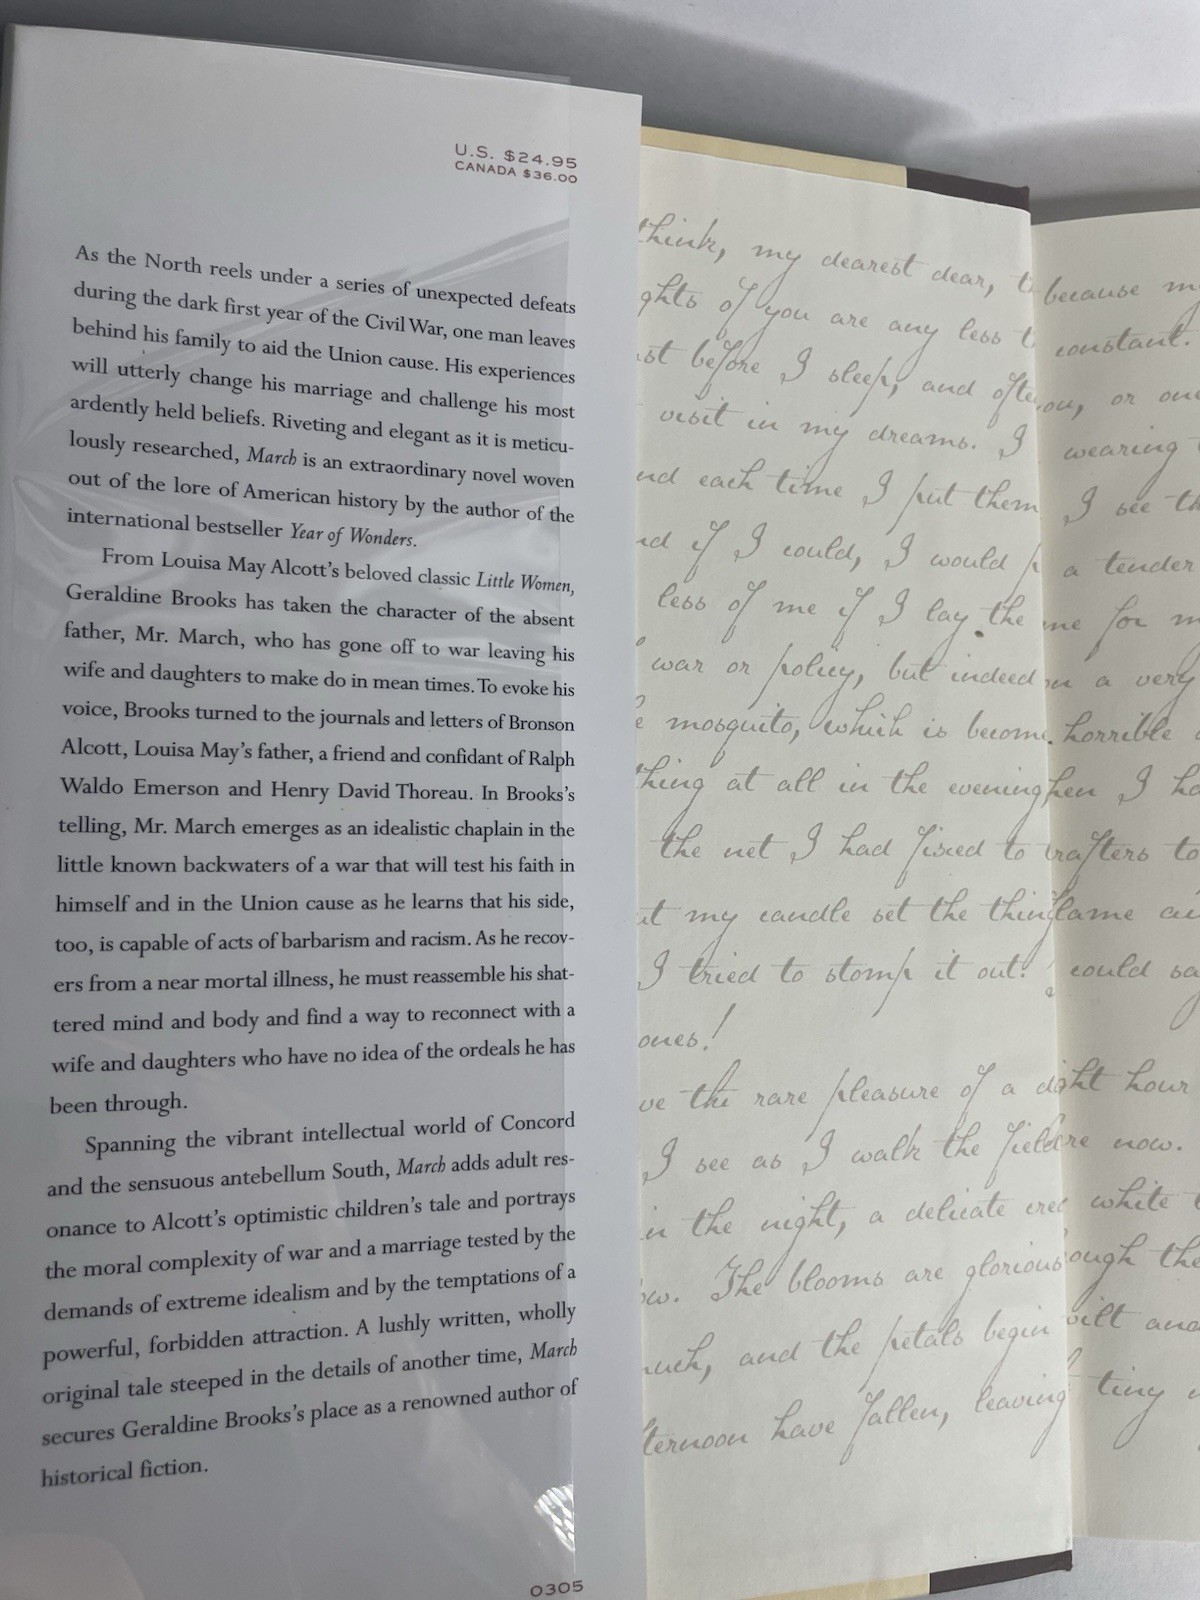 U.S. $24.95
CANADA $36.00
As the North reels under a series of unexpected defeats
during the dark first year of the Civil War, one man leaves
behind his family to aid the Union cause. His experiences
will utterly change his marriage and challenge his most
ardently held beliefs. Riveting and elegant as it is meticu-
lously researched, March is an extraordinary novel woven
out of the lore of American history by the author of the
international bestseller Year of Wonders.
From Louisa May Alcott's beloved classic Little Women,
Geraldine Brooks has taken the character of the absent
father, Mr. March, who has gone off to war leaving his
wife and daughters to make do in mean times. To evoke his
voice, Brooks turned to the journals and letters of Bronson
Alcott, Louisa May's father, a friend and confidant of Ralph
Waldo Emerson and Henry David Thoreau. In Brooks's
telling, Mr. March emerges as an idealistic chaplain in the
little known backwaters of a war that will test his faith in
himself and in the Union cause as he learns that his side,
too, is capable of acts of barbarism and racism. As he recov-
ers from a near mortal illness, he must reassemble his shat-
tered mind and body and find a way to reconnect with a
wife and daughters who have no idea of the ordeals he has
been through.
Spanning the vibrant intellectual world of Concord
and the sensuous antebellum South, March adds adult res-
onance to Alcott's optimistic children's tale and portrays
the moral complexity of war and a marriage tested by the
demands of extreme idealism and by the temptations of a
powerful, forbidden attraction. A lushly written, wholly
original tale steeped in the details of another time, March
secures Geraldine Brooks's place as a renowned author of
historical fiction.
0305
think, my dearest dear, because
of you are any less constant.
before I sleep, and or
visit in my dreams. I wearing
each time I put them I see
if I could, I would a tender
less of me if I lay the me for
war or policy, but indeed a very
mosquito, which is become horrible
thing at all in the evening I
the net I had fixed to rafters to
my candle set the flame
I tried to stomp it out. could
ones!
the rare pleasure of a hour
I see as I walk the now.
in the night, a delicate white
The blooms are glorious the
and the petals begin
have fallen, leaving tiny